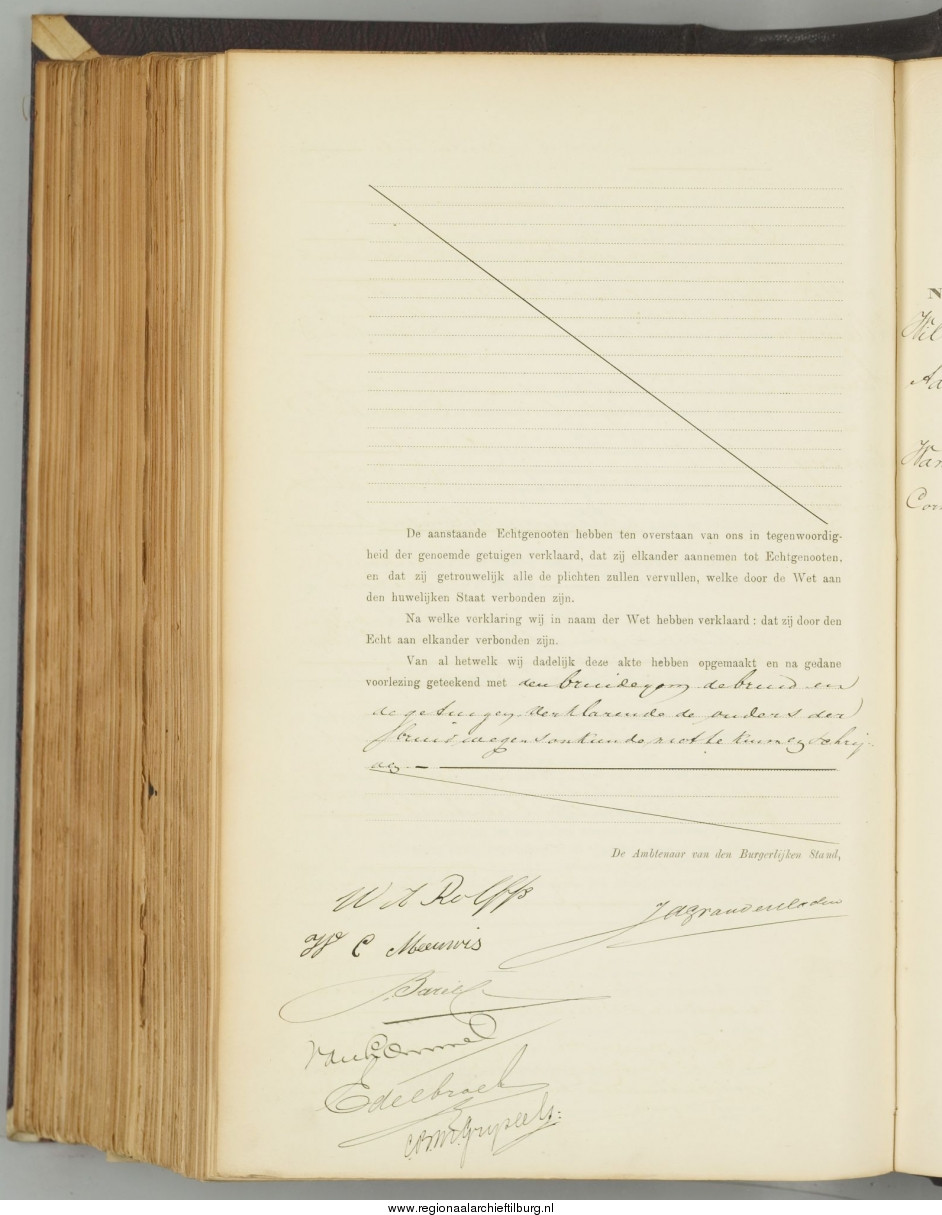 De aanstaande Echtgenooten hebben ten overstaan van ons in tegenwoordig-
heid der genoemde getuigen verklaard, dat zij elkander aannemen tot Echtgenooten.
en dat zij getrouwelijk alle de plichten zullen vervullen, welke door de Wet aan
den huwelijken Staat verbonden zijn.
Na welke verklaring wij in naam der Wet hebben verklaard : dat zij door den
Echt aan elkander verbonden zijn.
Van al hetwelk wij dadelijk deze akte hebben opgemaakt en na gedane
voorlezing geteekend met den bruidegom de bruid en
de getuigen verklarende de ouders der
bruid wegens onkunde niet te kunnen schrij-
ven. —
De Ambtenaar van den Burgerlijken Stand,
W A Rolffs
W C Meeuwis
van Hemmel
Edelbroek
N
Wil
Aa
Cor
www.regionaalarchieftilburg.nl